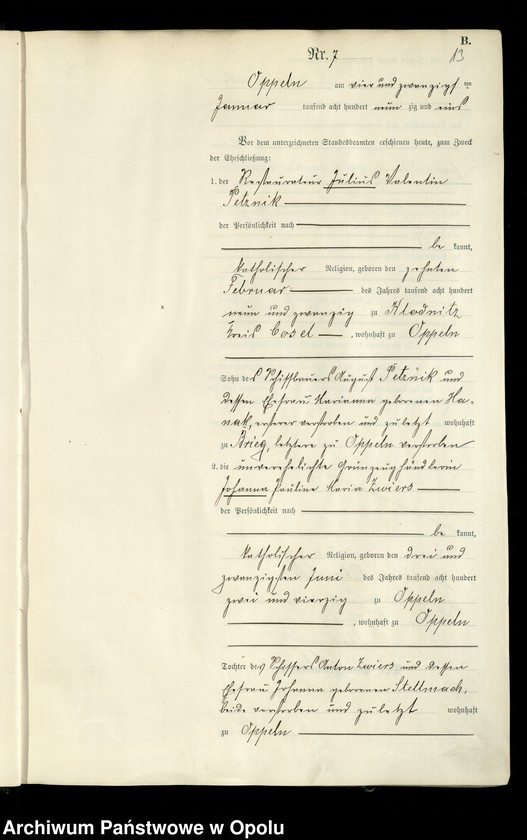 B.
Nr. 7
13
Oppeln am vier und zwanzigsten
Januar tausend acht hundert neunzig und eins
Vor dem unterzeichneten Standesbeamten erschienen heute, zum Zweck
der Eheschließung:
1. der Restaurateur Julius Valentin
Petznik
der Persönlichkeit nach
be kannt,
katholischer Religion, geboren den zehnten
Februar des Jahres tausend acht hundert
neun und zwanzig zu Klodnitz
Kreis Cosel, wohnhaft zu Oppeln
Sohn des Schiffbauers August Petznik und
dessen Ehefrau Marianna geborenen Ha-
nak, ersterer verstorben und zuletzt wohnhaft
zu Brieg, letztere zu Oppeln verstorben
2. die unverehelichte Grünzeughändlerin
Johanna Pauline Maria Zwiers
der Persönlichkeit nach
be kannt,
katholischer Religion, geboren den drei und
zwanzigsten Juni des Jahres tausend acht hundert
zwei und vierzig zu Oppeln
, wohnhaft zu Oppeln
Tochter des Schiffers Anton Zwiers und dessen
Ehefrau Johanna geborenen Stellmach,
beide verstorben und zuletzt wohnhaft
zu Oppeln
Archiwum Państwowe w Opolu